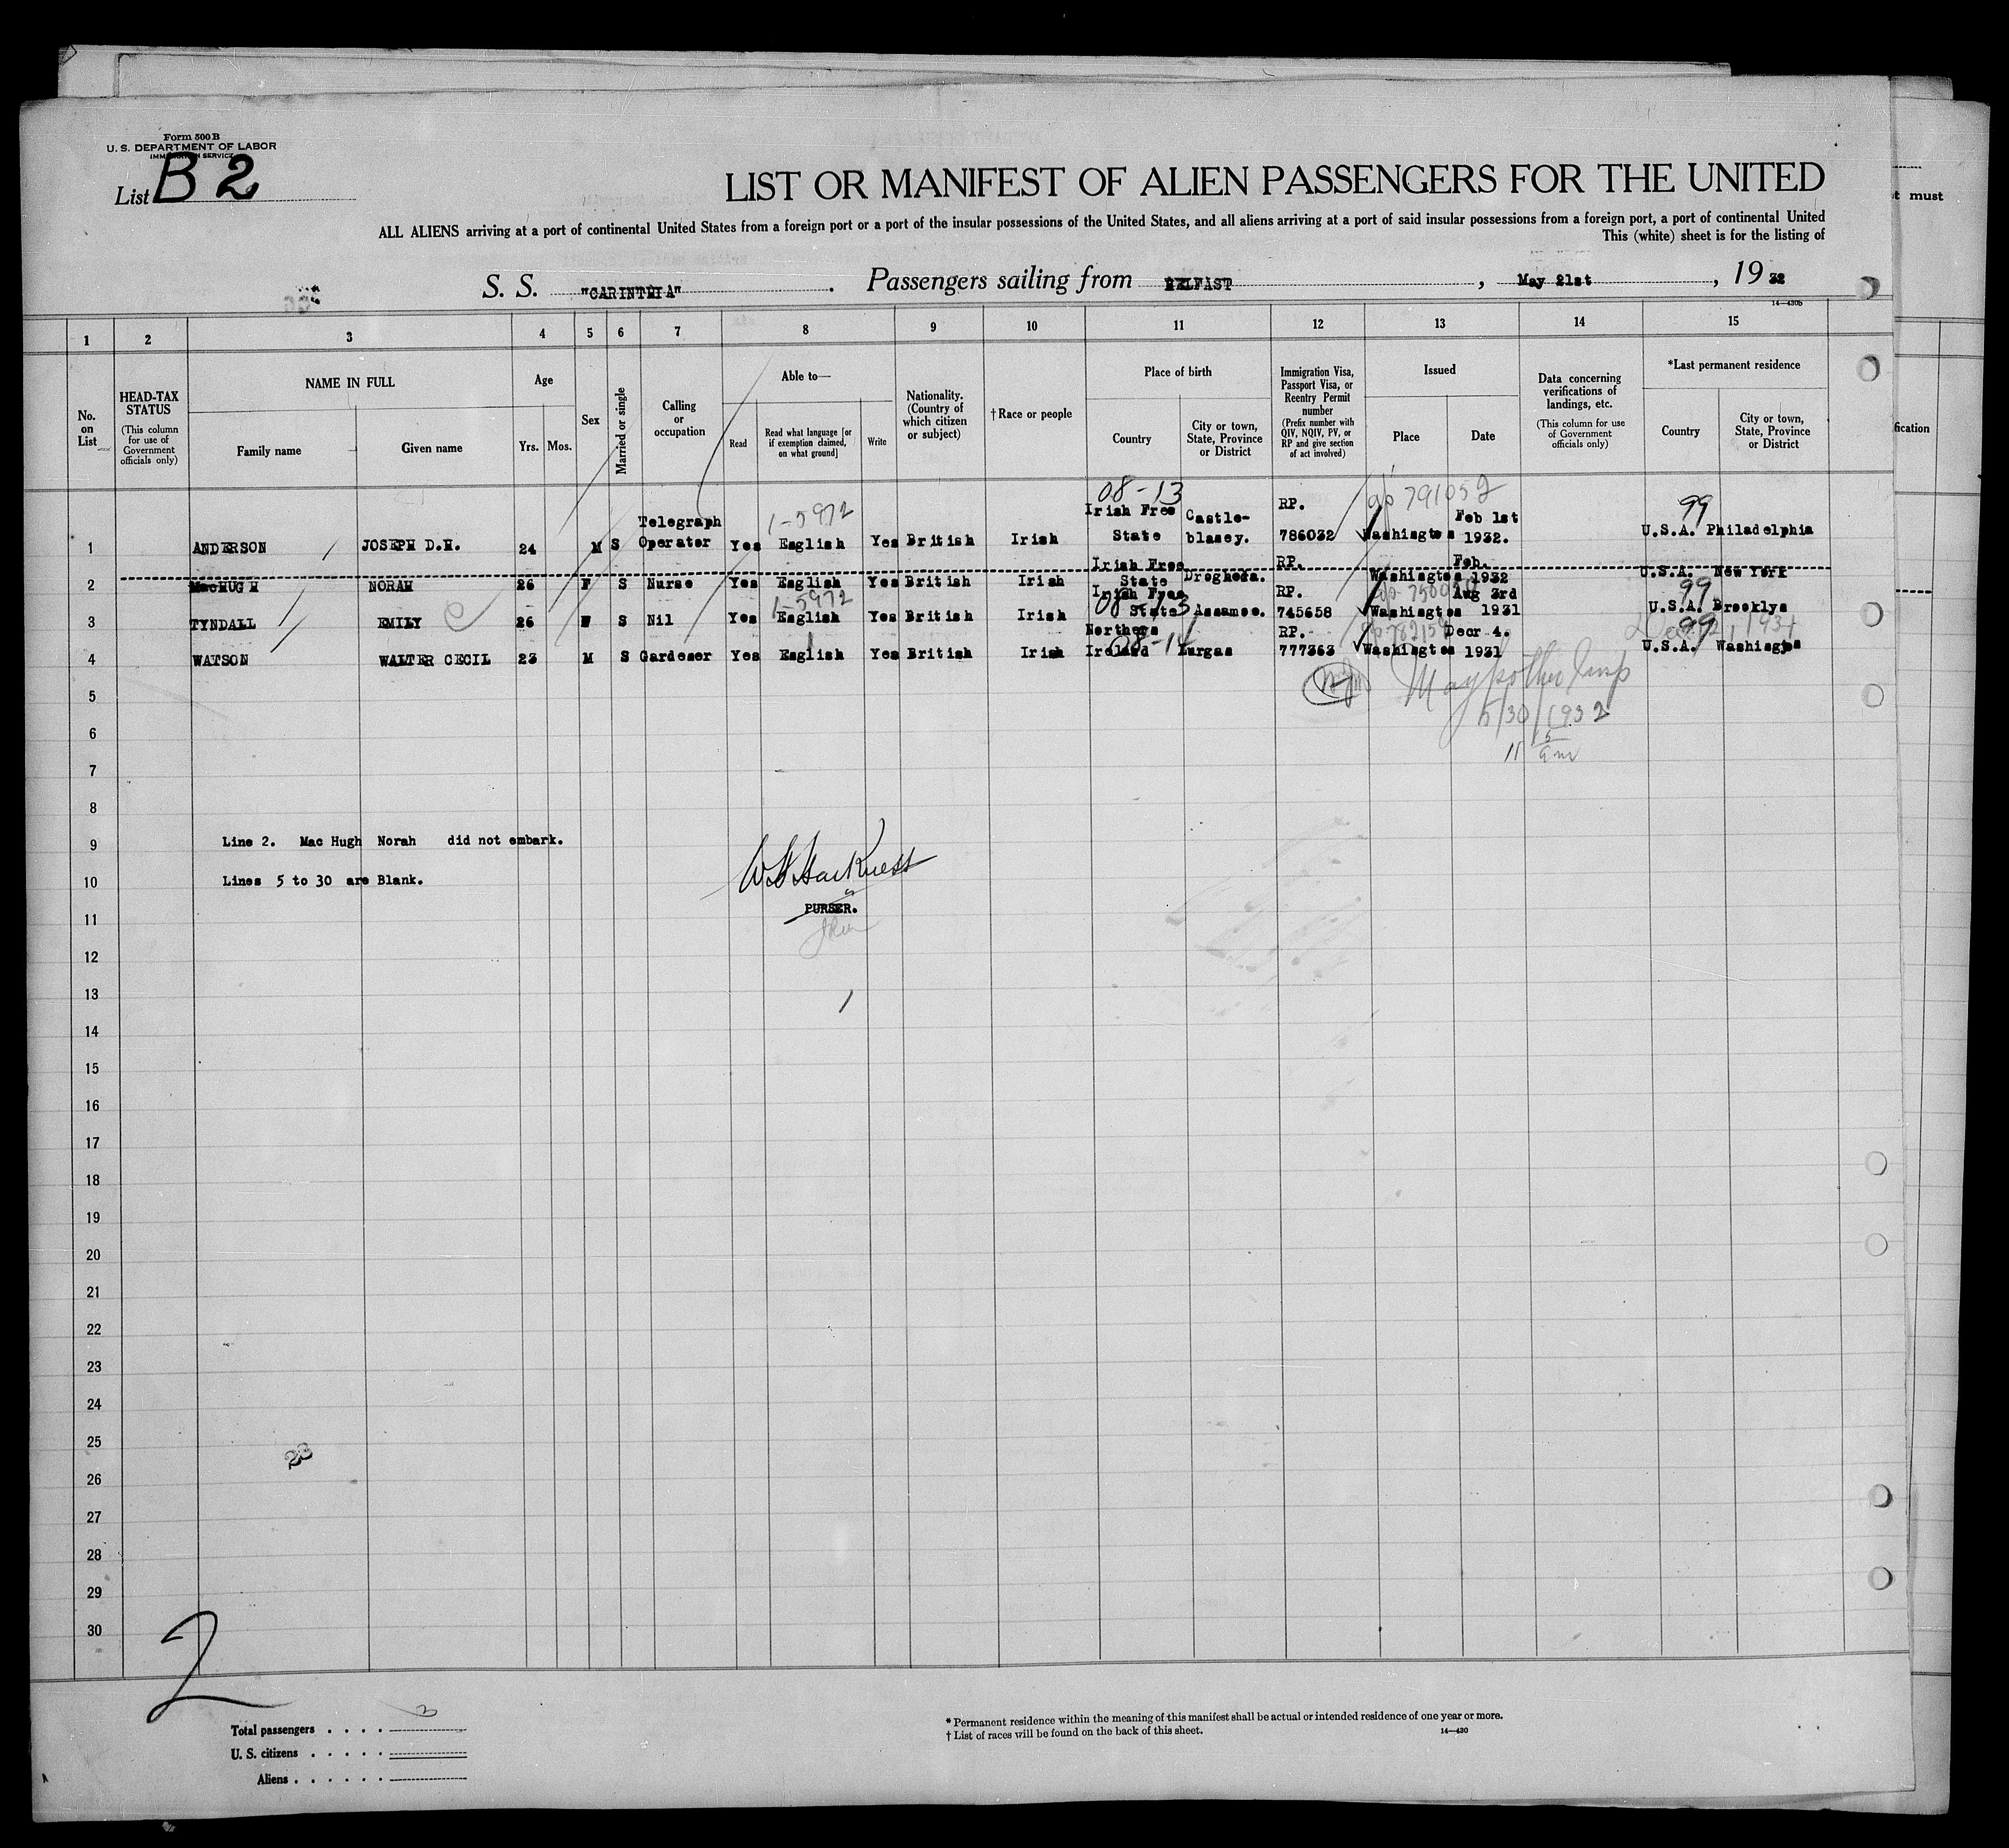 Form 500 B
U. S. DEPARTMENT OF LABOR
IMMIGRATION SERVICE
List B 2
LIST OR MANIFEST OF ALIEN PASSENGERS FOR THE UNITED
t must
ALL ALIENS arriving at a port of continental United States from a foreign port or a port of the insular possessions of the United States, and all aliens arriving at a port of said insular possessions from a foreign port, a port of continental United
This (white) sheet is for the listing of
S. S. "CARINTHIA" . Passengers sailing from BELFAST , May 21st , 19 32
14—430b
1 2 3 4 5 6 7 8 9 10 11 12 13 14 15
No. on List
HEAD-TAX STATUS
(This column for use of Government officials only)
NAME IN FULL
Family name Given name
Age
Yrs. Mos.
Sex
Married or single
Calling or occupation
Able to—
Read
Read what language [or if exemption claimed, on what ground]
Write
Nationality. (Country of which citizen or subject)
† Race or people
Place of birth
Country
City or town, State, Province or District
Immigration Visa, Passport Visa, or Reentry Permit number
(Prefix number with QIV, NQIV, PV, or RP and give section of act involved)
Issued
Place Date
Data concerning verifications of landings, etc.
(This column for use of Government officials only)
*Last permanent residence
Country
City or town, State, Province or District
fication
08-13 791052
1-5972 99
1 ANDERSON JOSEPH D.H. 24 M S Telegraph Operator Yes English Yes British Irish Irish Free State Castle-blaney. RP. 786032 Washington Feb 1st 1932. U.S.A. Philadelphia
2 MacHUGH NORAH 26 F S Nurse Yes English Yes British Irish Irish Free State Drogheda. RP. Washington Feb. 1932 U.S.A. New York
1-5972 08-13 99
3 TYNDALL EMILY 26 F S Nil Yes English Yes British Irish Irish Free State Annamoe. RP. 745658 Washington Aug 3rd 1931 U.S.A. Brooklyn
08-14 99
4 WATSON WALTER CECIL 23 M S Gardener Yes English Yes British Irish Northern Ireland Lurgan RP. 777363 Washington Decr 4. 1931 U.S.A. Washington
5
5/30/1932
6
7
8
9 Line 2. Mac Hugh Norah did not embark.
10 Lines 5 to 30 are Blank.
W Harkness
11 PURSER.
12
13
14
15
16
17
18
19
20
21
22
23
24
25
26
27
28
29
30
2
Total passengers . . . . 3
U. S. citizens . . . . .
Aliens . . . . . .
* Permanent residence within the meaning of this manifest shall be actual or intended residence of one year or more.
† List of races will be found on the back of this sheet. 14—430